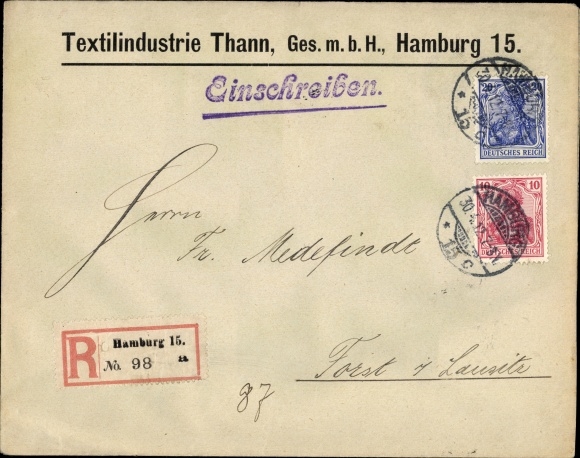 Textilindustrie Thann, Ges. m. b. H., Hamburg 15.
Einschreiben.
20
DEUTSCHES REICH
HAMBURG
* 15 c
10
DEUTSCHES REICH
HAMBURG
30
* 15 c
Herrn
Fr. Medefindt
R
Hamburg 15.
No. 98 a
Forst i/ Lausitz
87